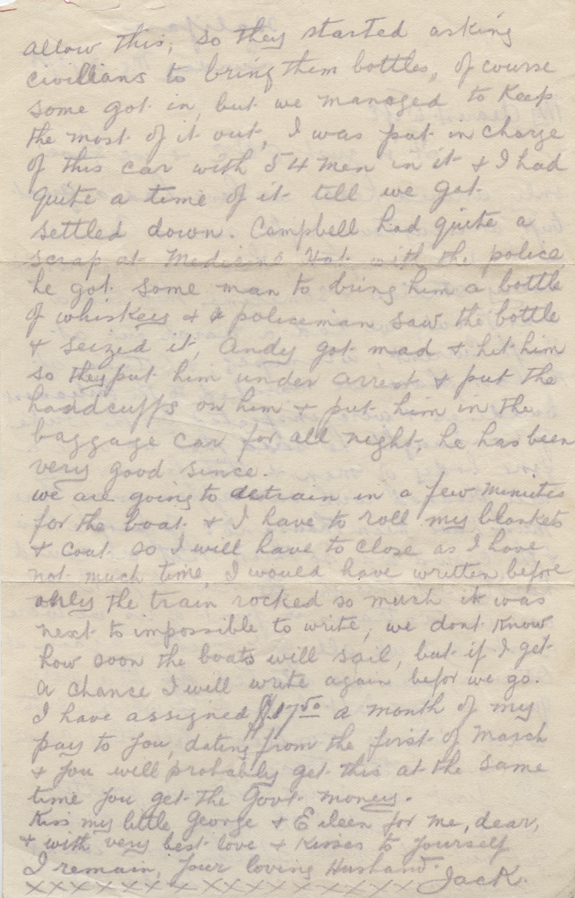 allow this, so they started asking
civilians to bring them bottles, of course
some got in, but we managed to keep
the most of it out, I was put in charge
of this car with 54 men in it & I had
quite a time of it till we got
settled down. Campbell had quite a
scrap at Medicine Hat with the police,
he got some man to bring him a bottle
of whiskey & a policeman saw the bottle
& seized it, Andy got mad & hit him
so they put him under arrest & put the
handcuffs on him & put him in the
baggage car for all night, he has been
very good since.
we are going to detrain in a few minutes
for the boat & I have to roll my blankets
& coat so I will have to close as I have
not much time, I would have written before
only the train rocked so much it was
next to impossible to write, we dont know
how soon the boats will sail, but if I get
a chance I will write again befor we go.
I have assigned $17 50 a month of my
pay to you, dating from the first of March
& you will probably get this at the same
time you get the Govt money.
Kiss my little George & Eileen for me, dear,
& with very best love & kisses to yourself
I remain, your loving Husband.
xxxxxxxxxxxxxxxxxxxx Jack.